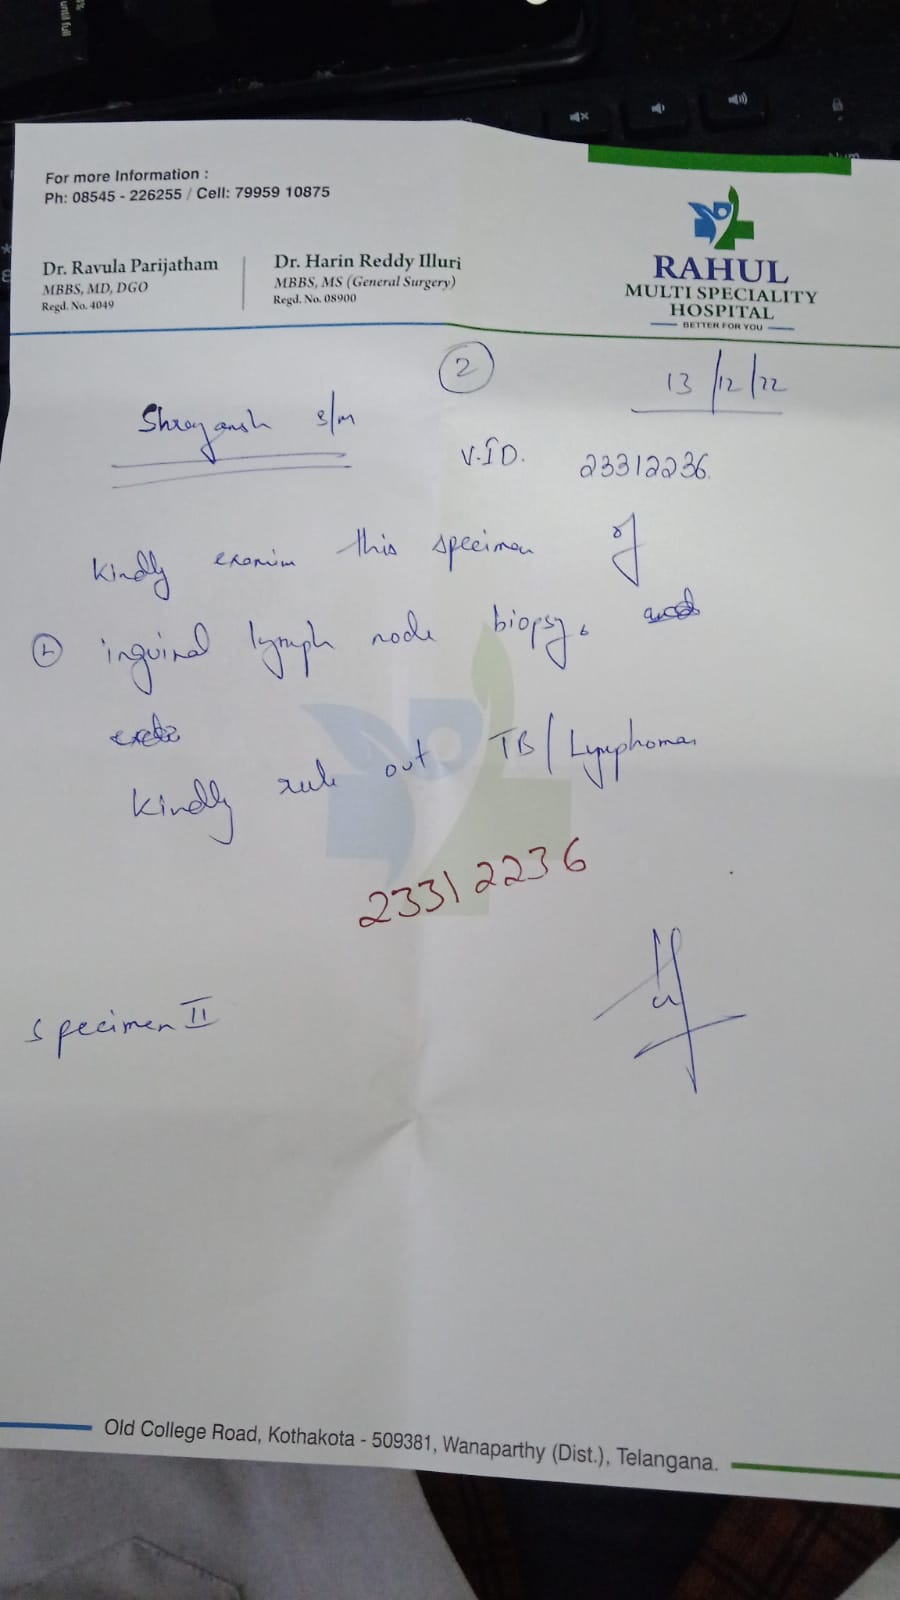 For more Information :
Ph: 08545 - 226255 / Cell: 79959 10875
Dr. Ravula Parijatham
MBBS, MD, DGO
Regd. No. 4049
Dr. Harin Reddy Illuri
MBBS, MS (General Surgery)
Regd. No. 08900
RAHUL
MULTI SPECIALITY
HOSPITAL
BETTER FOR YOU
2
13/12/22
Shreyansh 3/m
V.ID. 23312236.
Kindly examin this specimen of
inguinal lymph node biopsy.
Kindly rule out TB/Lymphoma
23312236
Specimen II
Old College Road, Kothakota - 509381, Wanaparthy (Dist.), Telangana.